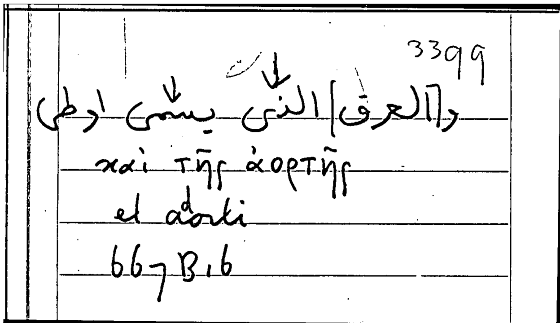 3399
و[العرق] الذى يسمى اورطى
καὶ τῆς ἀορτῆς
el adorti
667B,6